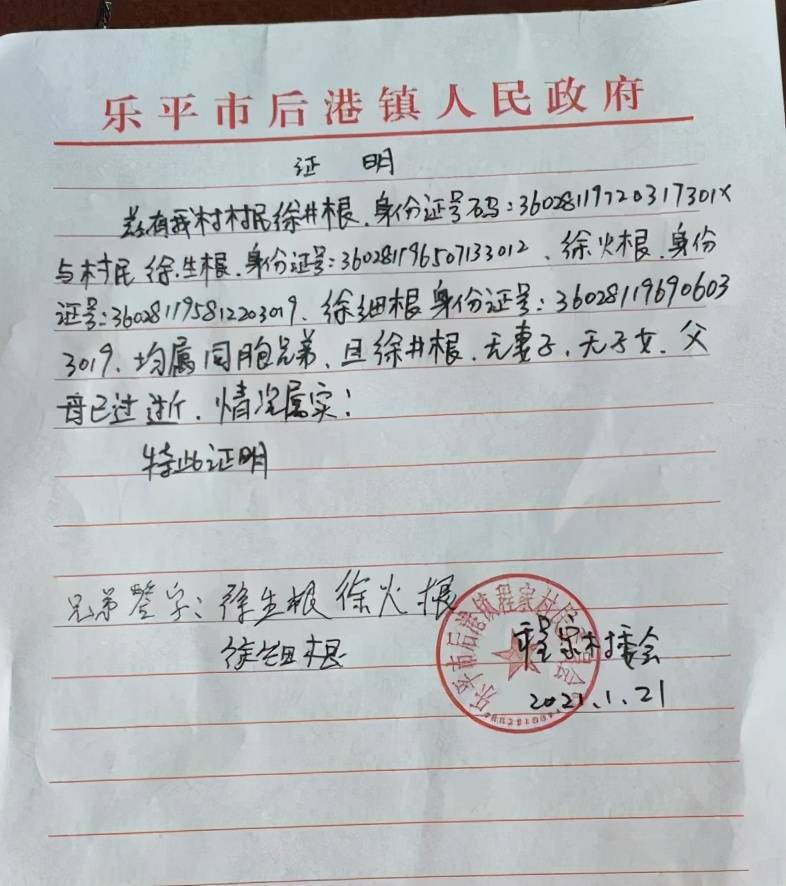 乐平市后港镇人民政府
证 明
兹有我村村民徐井根.身份证号码:36028119720317301X
与村民徐生根.身份证号:360281196507133012、徐火根.身份
证号:360281195812203019.徐细根身份证号:36028119690603
3019.均属同胞兄弟、且徐井根.无妻子.无子女.父
母已过逝.情况属实!
特此证明
兄弟签字:徐生根 徐火根
徐细根
乐平市后港镇程家村民委员会
程家村委会
2021.1.21